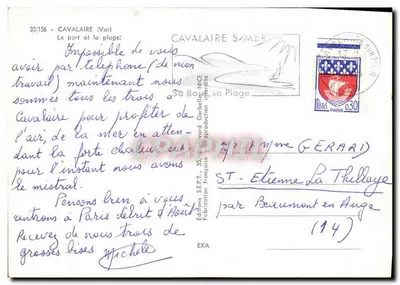 32/156 - CAVALAIRE (Var)
Le port et la plage.
Impossible de vous
avoir par telephone (de mon
travail) maintenant nous
sommes tous les trois à
Cavalaire pour profiter de
l'air, de la mer en atten-
dant la forte chaleur car
pour l'instant nous avons
le mistral.
Pensons bien à vous
rentrons à Paris début d'Août
Recevez de nous trois de
grosses bises Michèle
CAVALAIRE S/MER
Sa Baie, sa Plage
PARIS
0,30
Editions S.E.P.T.
EXA
Mr et Mme GERARD
ST-Etienne La Thillaye
par Beaumont en Auge
(14)